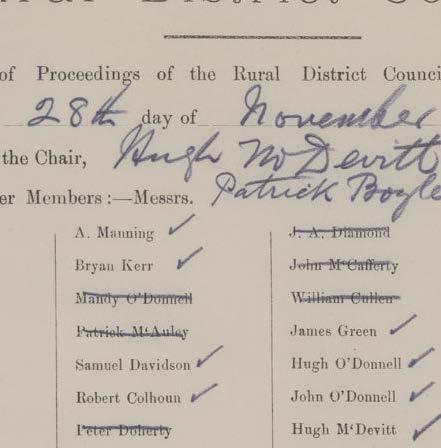 of Proceedings of the Rural District Counci
28th day of November
the Chair, Hugh McDevitt
er Members :—Messrs. Patrick Boyle
A. Manning ✓
Bryan Kerr ✓
Mandy O'Donnell
Patrick M‘Auley
Samuel Davidson ✓
Robert Colhoun ✓
Peter Doherty
J. A. Diamond
John M‘Cafferty
William Cullen
James Green ✓
Hugh O'Donnell ✓
John O'Donnell ✓
Hugh M‘Devitt ✓